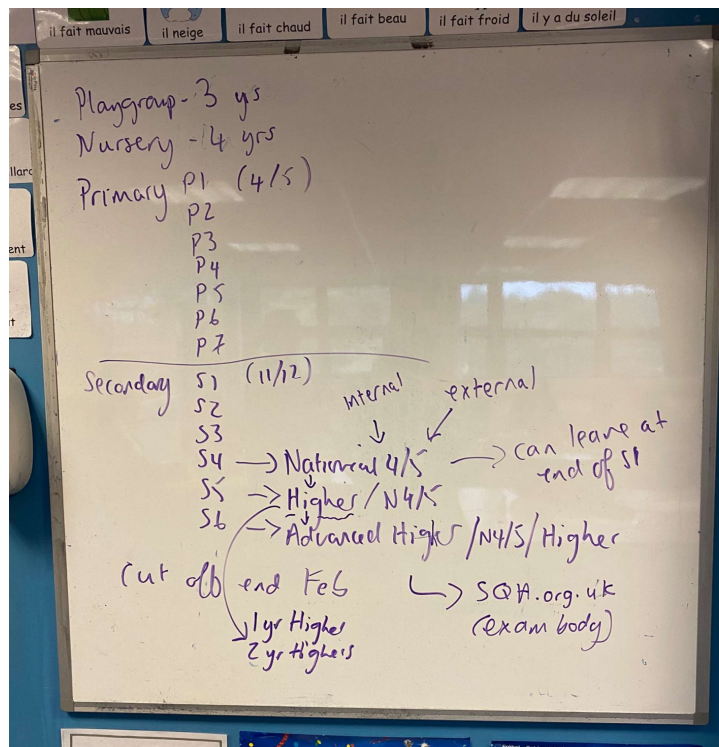 il fait mauvais
il neige
il fait chaud
il fait beau
il fait froid
il y a du soleil
es
llard
ent
t
Playgroup - 3 ys
Nursery - 4 yrs
Primary P1 (4/5)
P2
P3
P4
P5
P6
P7
Secondary S1 (11/12)
internal
external
S2
S3
S4 → National 4/5 → can leave at
end of S1
S5 → Higher / N4/5
S6 → Advanced Higher /N4/5/ Higher
Cut off end Feb
SQA.org.uk
(exam body)
1 yr Higher
2 yr Highers